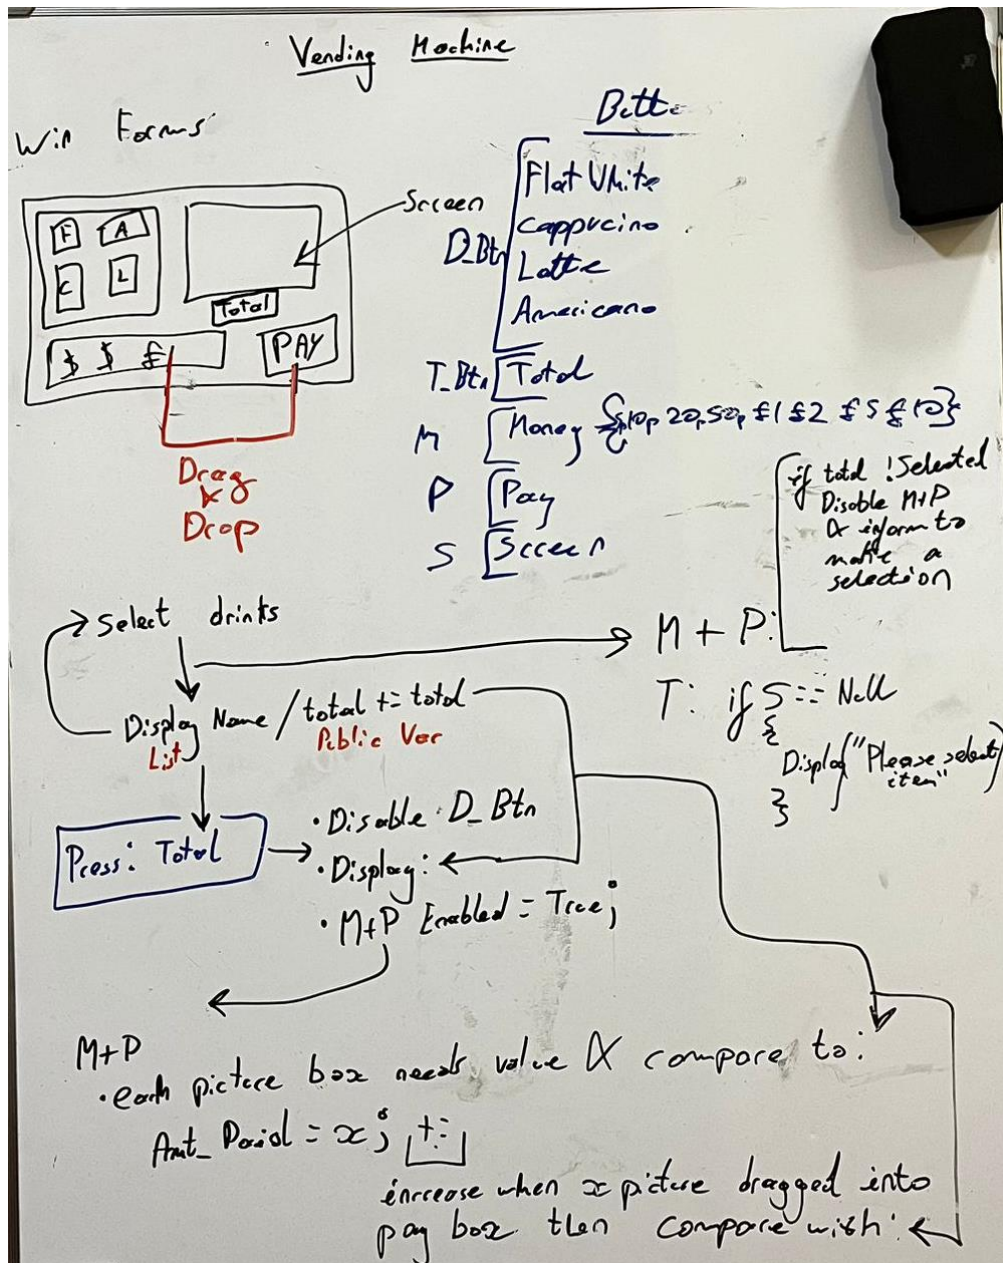 Vending Machine
Win Forms
F A
C L
Screen
Total
$ $ £
PAY
Drag
&
Drop
D_Btn
Flat White
Cappucino
Latte
Americano
T_Btn Total
M Money {10p 20p 50p £1 £2 £5 £10}
P Pay
S Screen
if total !Selected
Disable M+P
& inform to
make a
selection
M + P:
T: if S == Null
{
Display("Please select
item")
}
Select drinks
Display Name / total += total
List Public Var
Press: Total
• Disable D_Btn
• Display:
• M+P Enabled = True;
M+P
• each picture box needs value & compare to:
Amt_Paid = x; +=
increase when x picture dragged into
pay box then compare with: